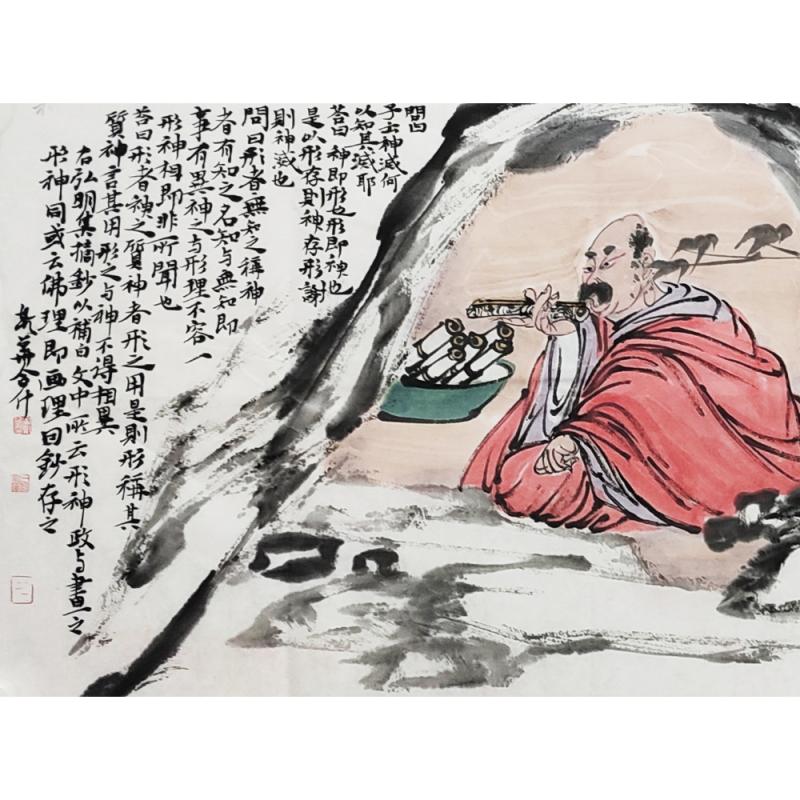 問曰
子云神滅何
以知其滅耶
荅曰神即形也形即神也
是以形存則神存形謝
則神滅也
問曰形者無知之稱神
者有知之名知与無知即
事有異神之与形理不容一
形神相即非所聞也
荅曰形者神之質神者形之用是則形稱其
質神言其用形之与神不得相異
右弘明集摘鈔以補白文中所云形神政与畫之
形神同或云佛理即画理曰鈔存之
合什